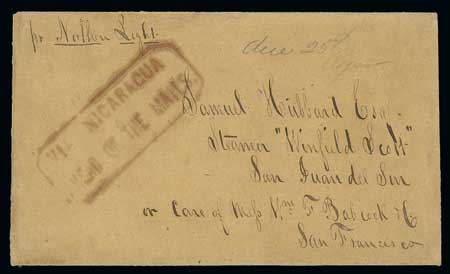 pr Northern Light.
due 25cts
VIA NICARAGUA
AHEAD OF THE MAILS
Samuel Hubbard Esq.
Steamer "Winfield Scott"
San Juan del Sur
or Care of Mess Wm. F Babcock & Co
San Francisco